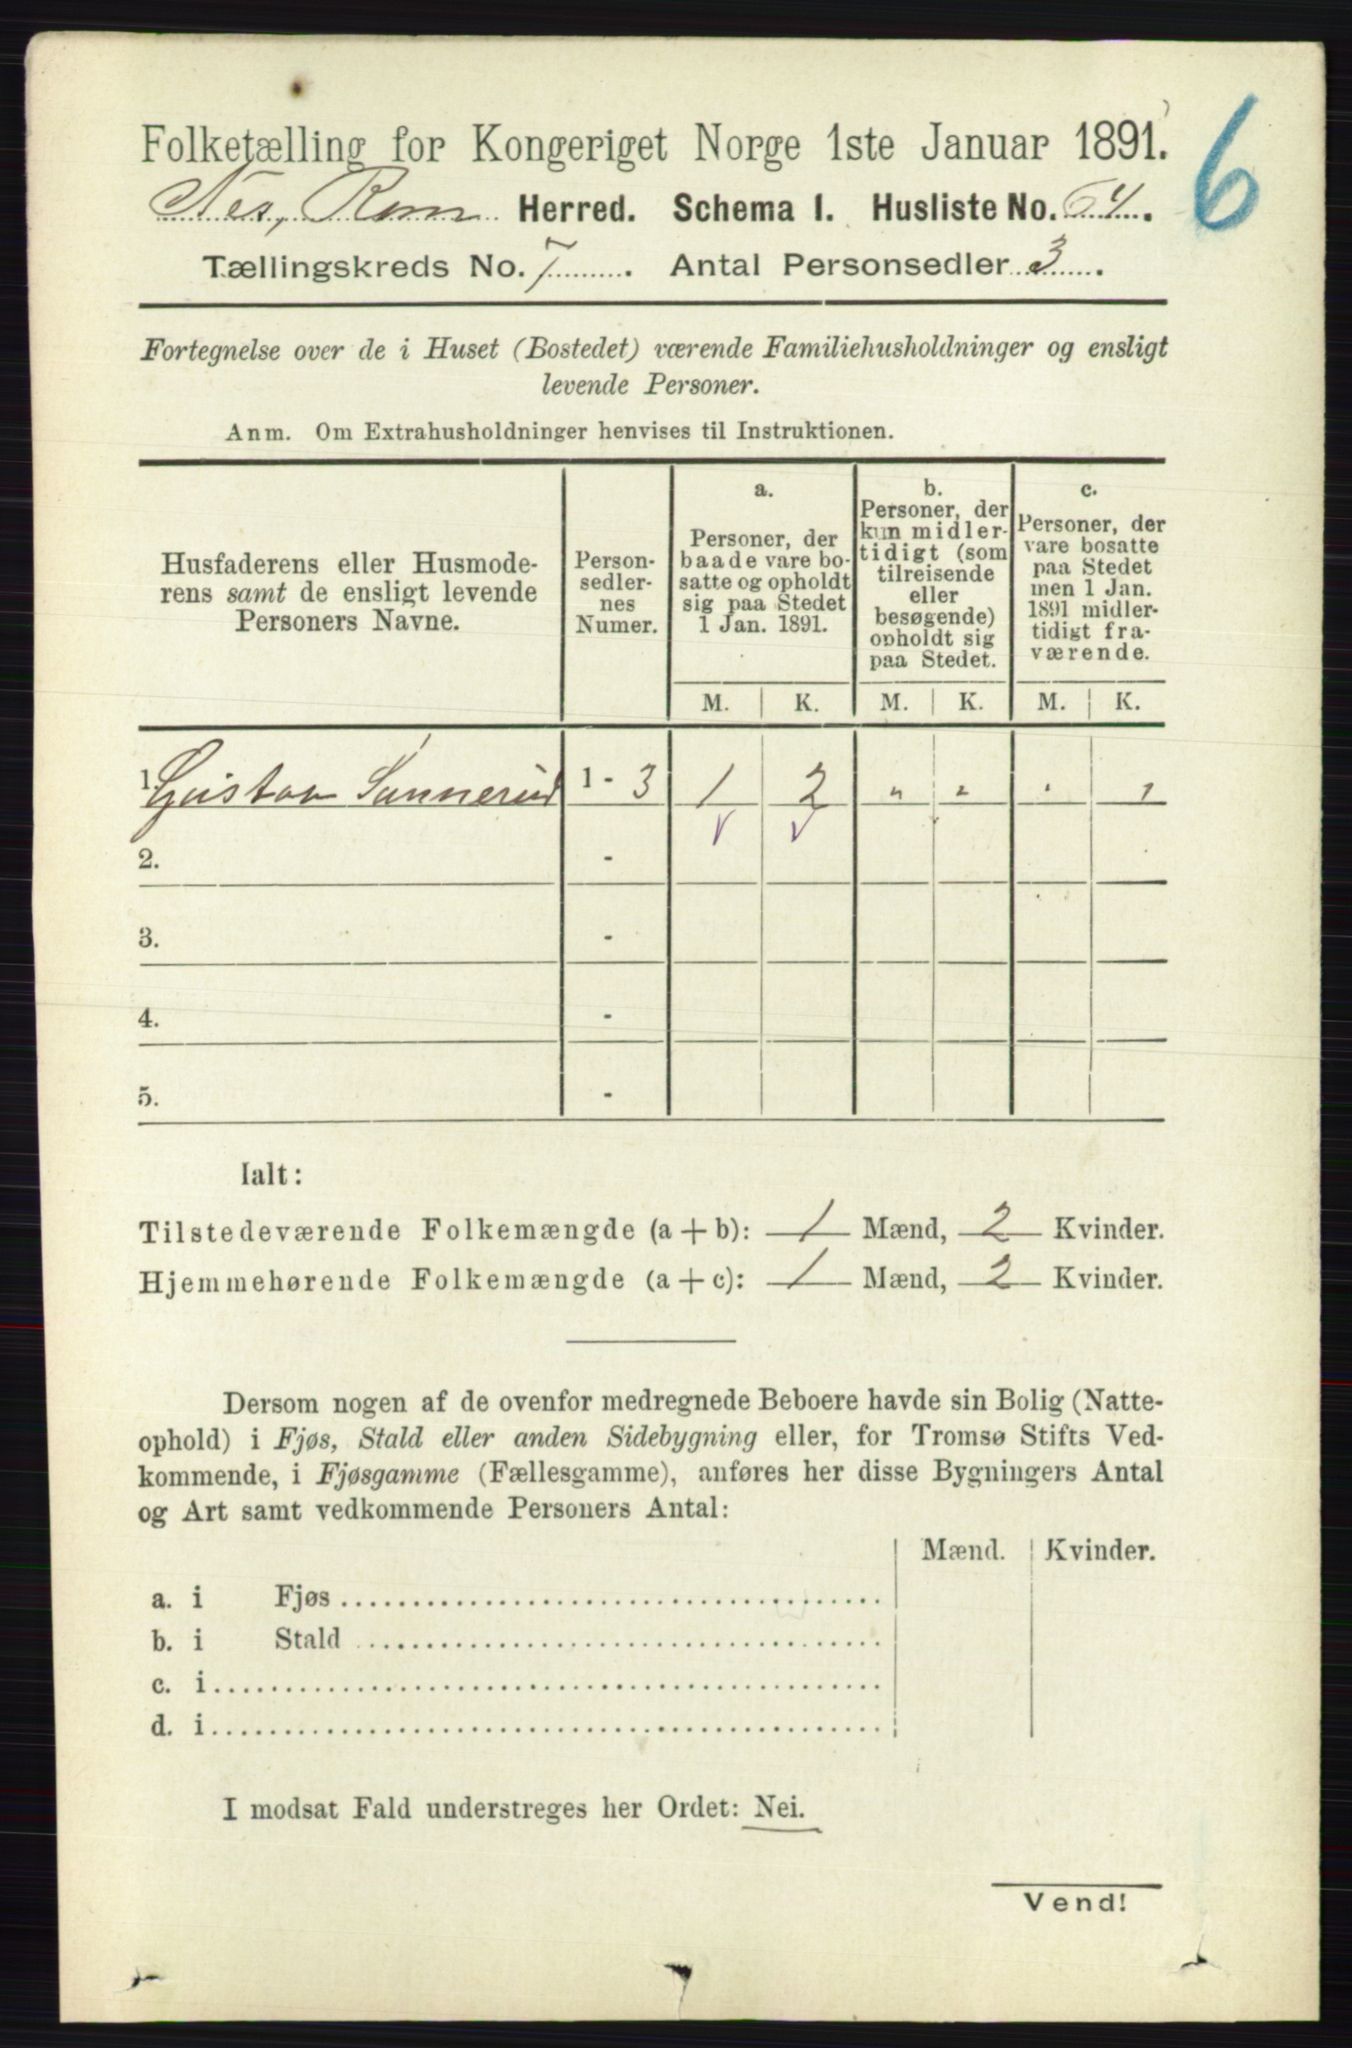 Folketælling for Kongeriget Norge 1ste Januar 1891.
6
Nes, Rom Herred. Schema I. Husliste No. 64.
Tællingskreds No. 7. Antal Personsedler 3.
Fortegnelse over de i Huset (Bostedet) værende Familiehusholdninger og ensligt
levende Personer.
Anm. Om Extrahusholdninger henvises til Instruktionen.
Husfaderens eller Husmode-
rens samt de ensligt levende
Personers Navne.
Person-
sedler-
nes
Numer.
a.
Personer, der
baade vare bo-
satte og opholdt
sig paa Stedet
1 Jan. 1891.
b.
Personer, der
kun midler-
tidigt (som
tilreisende
eller
besøgende)
opholdt sig
paa Stedet.
c.
Personer, der
vare bosatte
paa Stedet
men 1 Jan.
1891 midler-
tidigt fra-
værende.
M. K. M. K. M. K.
1. Gustav Sannerud 1 - 3 1 2 " "
2. -
3. -
4. -
5. -
Ialt:
Tilstedeværende Folkemængde (a + b): 1 Mænd, 2 Kvinder.
Hjemmehørende Folkemængde (a + c): 1 Mænd, 2 Kvinder.
Dersom nogen af de ovenfor medregnede Beboere havde sin Bolig (Natte-
ophold) i Fjøs, Stald eller anden Sidebygning eller, for Tromsø Stifts Ved-
kommende, i Fjøsgamme (Fællesgamme), anføres her disse Bygningers Antal
og Art samt vedkommende Personers Antal:
Mænd. Kvinder.
a. i Fjøs
b. i Stald
c. i
d. i
I modsat Fald understreges her Ordet: Nei.
Vend!